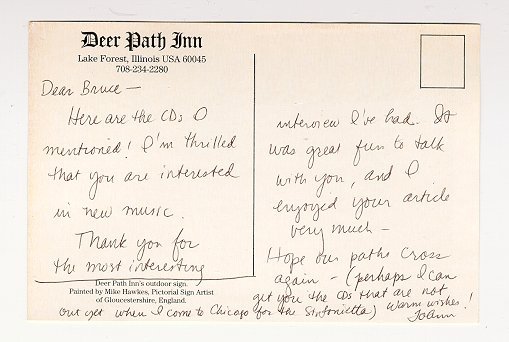 Deer Path Inn
Lake Forest, Illinois USA 60045
708-234-2280
Dear Bruce —
Here are the CDs I
mentioned! I'm thrilled
that you are interested
in new music.
Thank you for
the most interesting
interview I've had. It
was great fun to talk
with you, and I
enjoyed your article
very much —
Hope our paths cross
again — (perhaps I can
get you the CDs that are not
out yet when I come to Chicago for the Sinfonietta) Warm wishes!
JoAnn
Deer Path Inn's outdoor sign.
Painted by Mike Hawkes, Pictorial Sign Artist
of Gloucestershire, England.